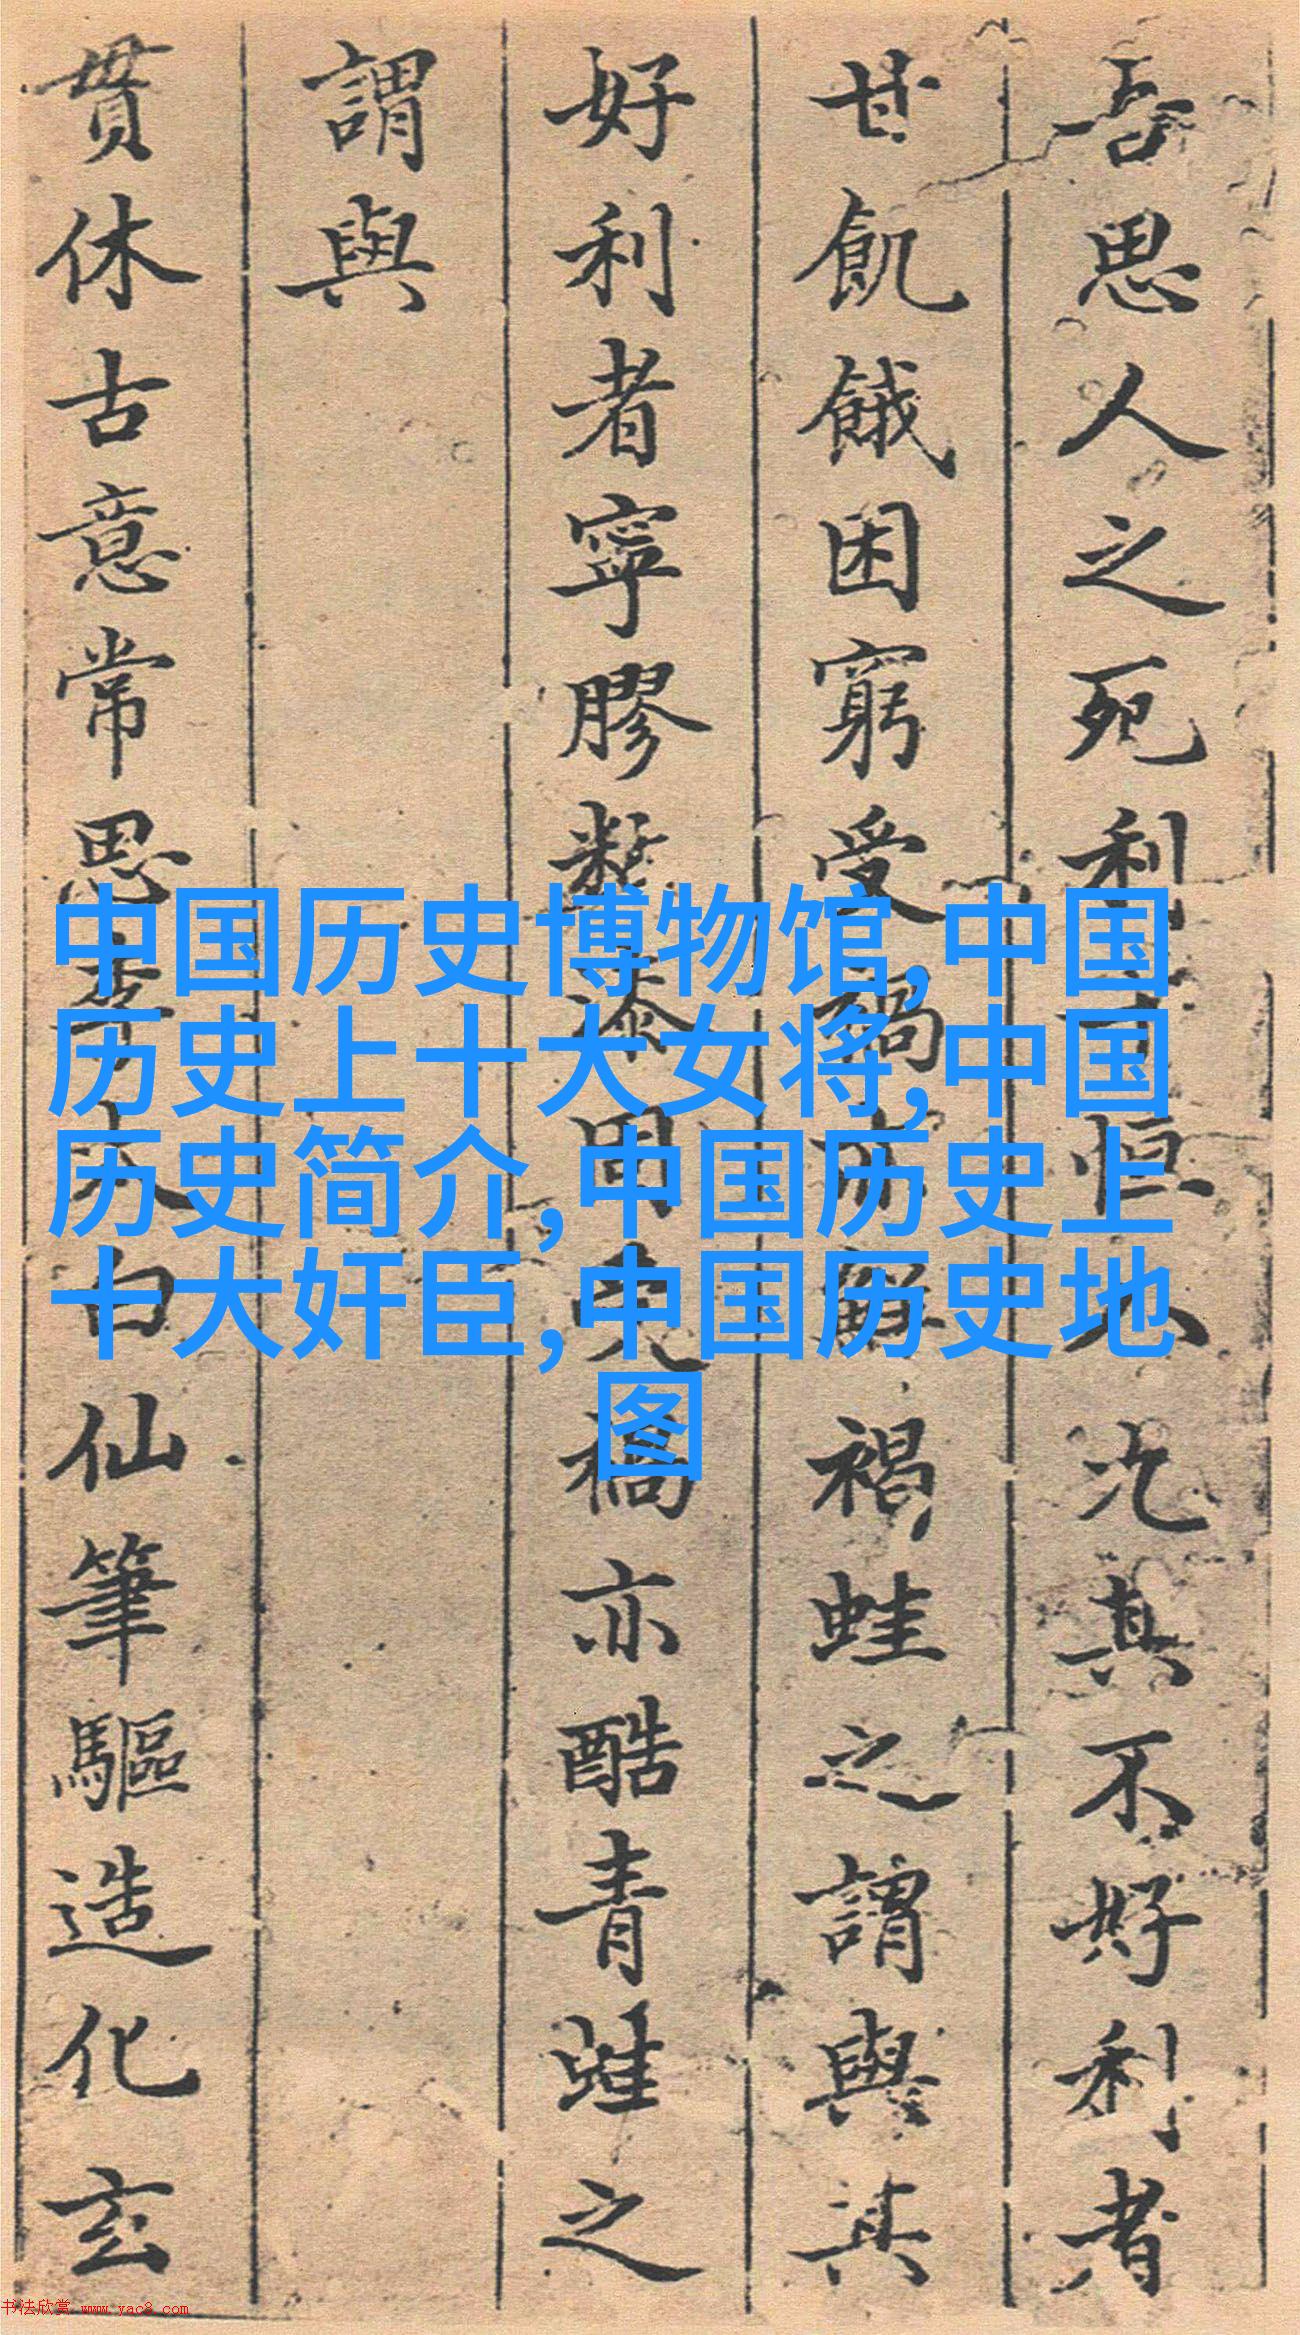 吾思人之死利
恒
况其不好利者
甘飢餓困窮受禍
褐蛙之謂與其
好利者寧膠
漆用
亦酷青蛙之
謂與
贯休古意常思李太白仙筆驅造化玄
中国历史博物馆,中国
历史上十大女将,中国
历史简介,中国历史上
十大奸臣,中国历史地
图
书法欣赏 www.yac8.com